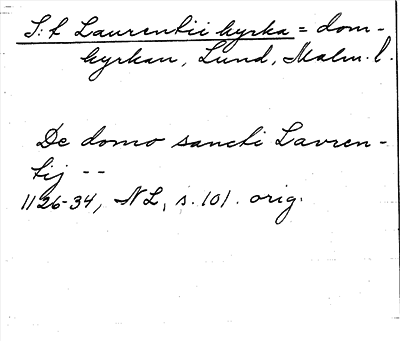 S:t Laurentii kyrka = dom-
kyrkan, Lund, Malm. l.
De domo sancti Lavren-
tij --
1126-34, NL, s. 101. orig.